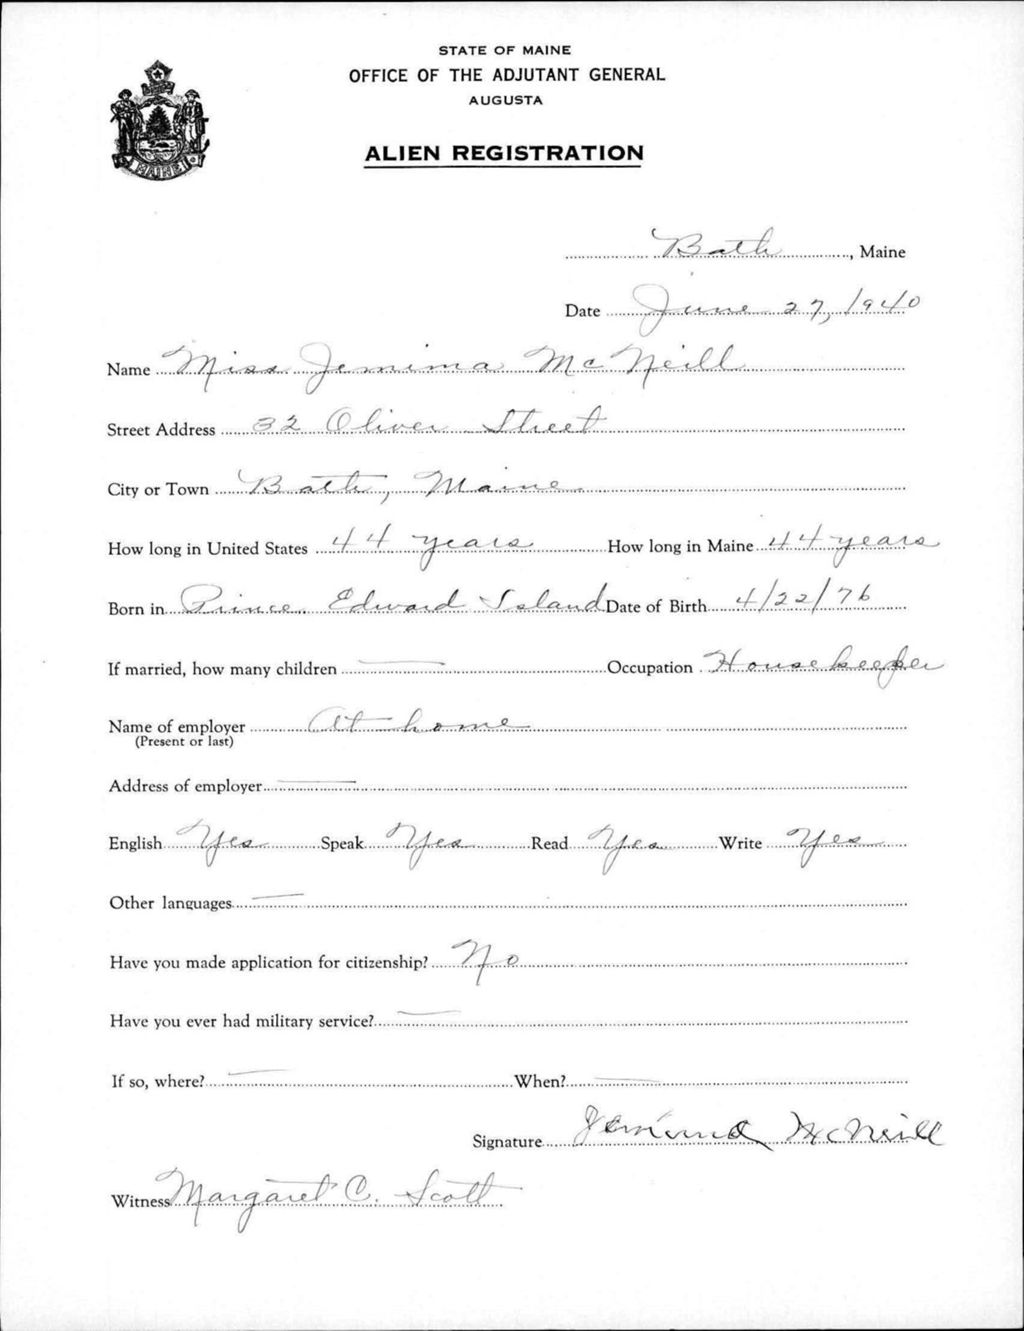 STATE OF MAINE
OFFICE OF THE ADJUTANT GENERAL
AUGUSTA
ALIEN REGISTRATION
MAINE
Bath, Maine
Date June 27, 1940
Name Miss Jemima McNeill
Street Address 32 Oliver Street
City or Town Bath, Maine
How long in United States 44 years How long in Maine 44 years
Born in Prince Edward Island Date of Birth 4/22/76
If married, how many children — Occupation Housekeeper
Name of employer At home
(Present or last)
Address of employer —
English Yes Speak Yes Read Yes Write Yes
Other languages —
Have you made application for citizenship? No
Have you ever had military service? —
If so, where? — When? —
Signature Jemima McNeill
Witness Margaret C. Scott